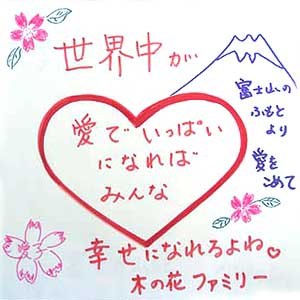 世界中が
愛でいっぱい
になれば
みんな
幸せになれるよね
木の花ファミリー
富士山の
ふもと
より
愛を
こめて